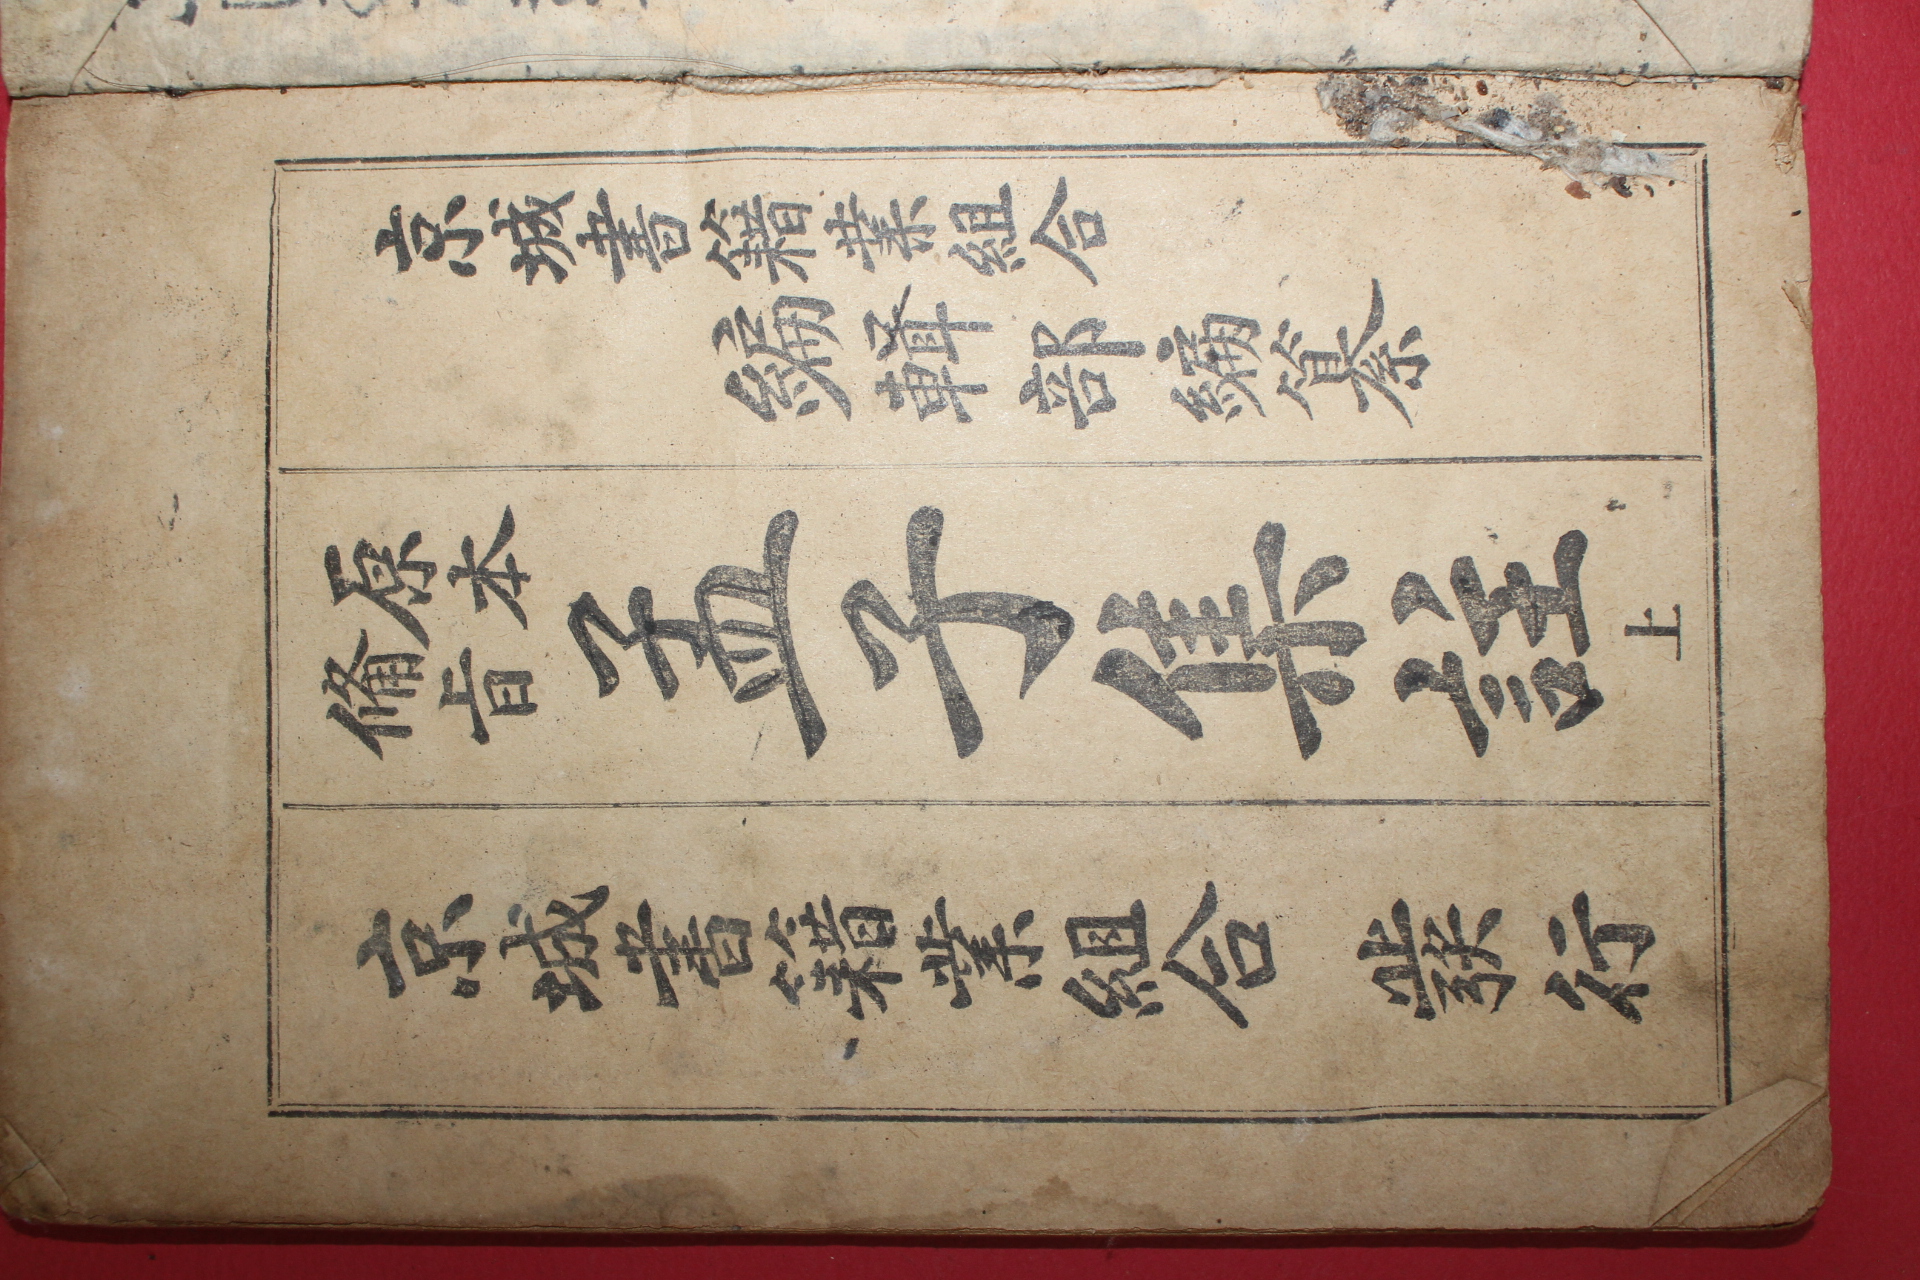 京城書籍業組合
編輯部編纂
原本
備旨
孟子集註 上
京城書籍業組合 發行